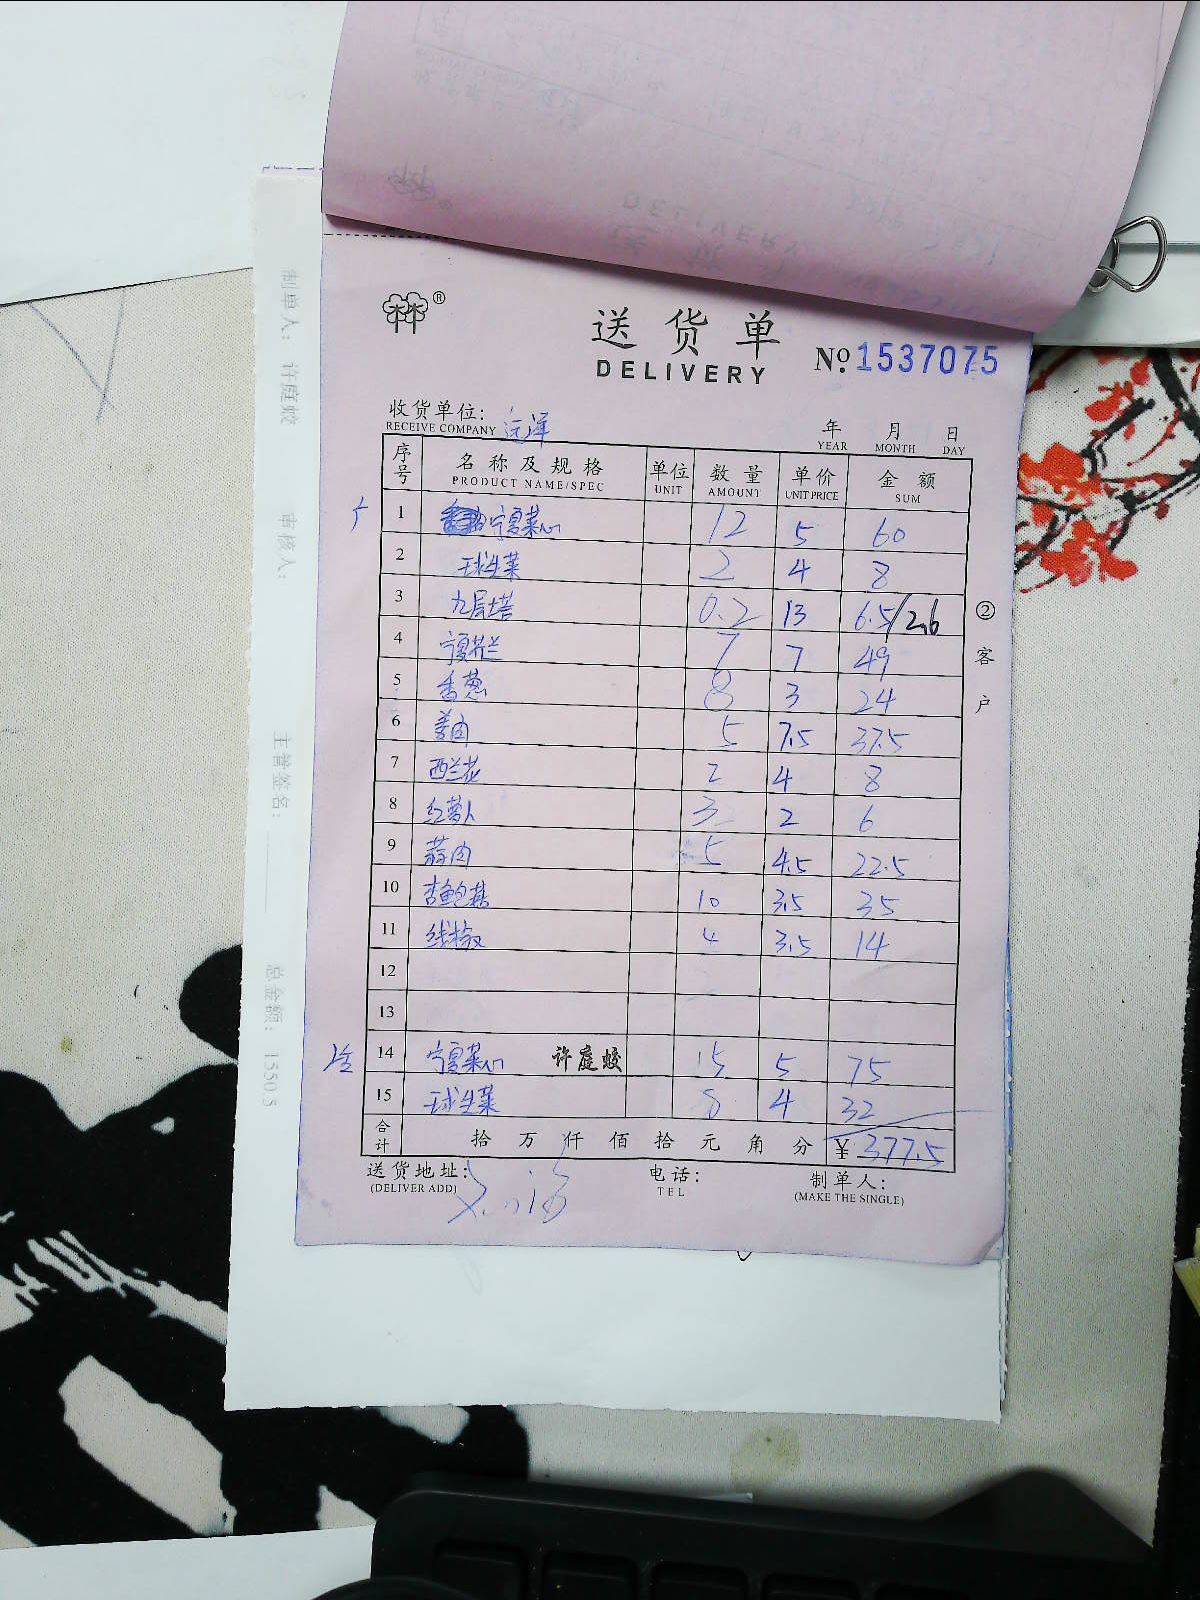 送货单
DELIVERY
№ 1537075
收货单位: 远洋
RECEIVE COMPANY
年 月 日
YEAR MONTH DAY
序号 名称及规格 单位 数量 单价 金额
PRODUCT NAME/SPEC UNIT AMOUNT UNIT PRICE SUM
上 1 宁夏菜心 12 5 60
2 球生菜 2 4 8
3 九层塔 0.2 13 6.5/2.6
4 宁夏芥兰 7 7 49
5 香葱 8 3 24
6 姜肉 5 7.5 37.5
7 西兰花 2 4 8
8 红萝卜 3 2 6
9 蒜肉 5 4.5 22.5
10 杏鲍菇 10 3.5 35
11 线椒 4 3.5 14
12
13
14 宁夏菜心 许庭蛟 15 5 75
15 球生菜 8 4 32
合计 拾 万 仟 佰 拾 元 角 分 ¥ 377.5
送货地址: 电话: 制单人:
(DELIVER ADD) TEL (MAKE THE SINGLE)
② 客户
制单人: 许庭蛟 审核人: 主管签名: 总金额: 1550.5